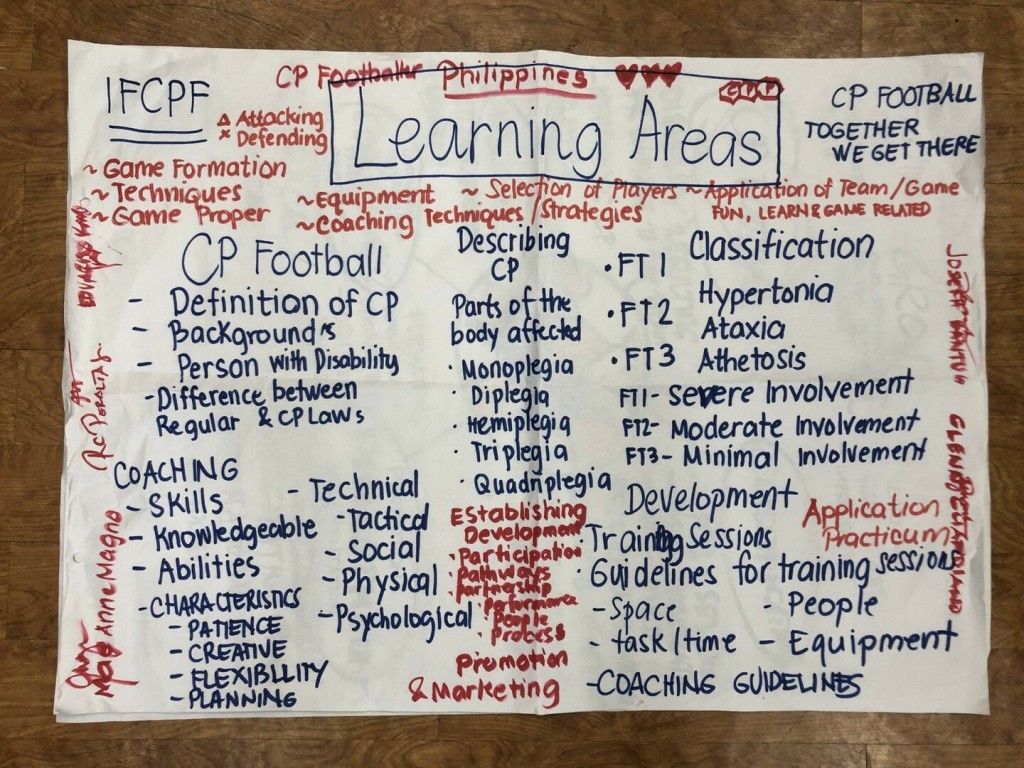 IFCPF
CP Footballer Philippines
CPF
CP FOOTBALL
TOGETHER
WE GET THERE
Learning Areas
Δ Attacking
× Defending
~ Game Formation
~ Techniques
~ Game Proper
~ Equipment
~ Coaching Techniques/Strategies
~ Selection of Players
~ Application of Team/Game
FUN, LEARN & GAME RELATED
CP Football
- Definition of CP
- Backgrounds
- Person with Disability
- Difference between
Regular & CP Laws
COACHING
- Skills
- Knowledgeable
- Abilities
- CHARACTERISTICS
- PATIENCE
- CREATIVE
- FLEXIBILITY
- PLANNING
- Technical
- Tactical
- Social
- Physical
- Psychological
Describing
CP
Parts of the
body affected
· Monoplegia
· Diplegia
· Hemiplegia
· Triplegia
· Quadriplegia
Establishing
Development
· Participation
· Pathways
· Partnership
· Performance
· People
· Process
Promotion
& Marketing
Classification
• FT1 Hypertonia
• FT2 Ataxia
• FT3 Athetosis
FT1- Severe Involvement
FT2- Moderate Involvement
FT3- Minimal Involvement
Development
· Training Sessions
· Guidelines for training sessions
- Space
- People
- task/time
- Equipment
- COACHING GUIDELINES
Application
Practicum
Anne Magno
JOSEPH
GLENN